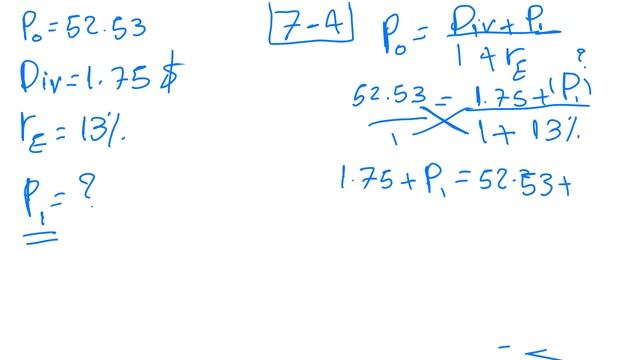 P₀ = 52.53
Div = 1.75 $
r_E = 13%
P₁ = ?
7-4
P₀ = (Div + P₁) / (1 + r_E)
?
52.53 / 1 = (1.75 + (P₁)) / (1 + 13%)
1.75 + P₁ = 52.53 +